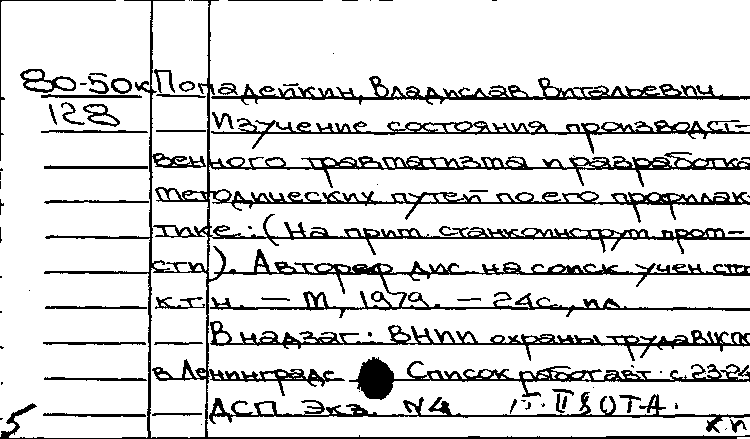 80-50к Попадейкин, Владислав Витальевич
128 Изучение состояния производст-
венного травматизма и разработка
методических путей по его профилак
тике: (На прим. станкоинструм. пром-
сти). Автореф. дис. на соиск. учен. ст
к.т.н. — М, 1979. — 24с., ил.
В надзаг.: ВНИИ охраны труда ВЦСПС
в Ленинграде Список работ авт. с. 23-24
ДСП. Экз. N4.
5 х.п